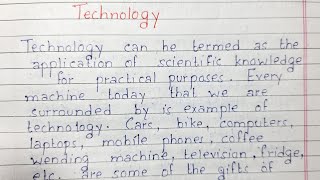 Technology
Technology can be termed as the
application of scientific knowledge
for practical purposes. Every
machine today that we are
surrounded by is example of
technology. Cars, bike, computers,
laptops, mobile phones, coffee
wending machine, television, fridge,
etc. are some of the gifts of